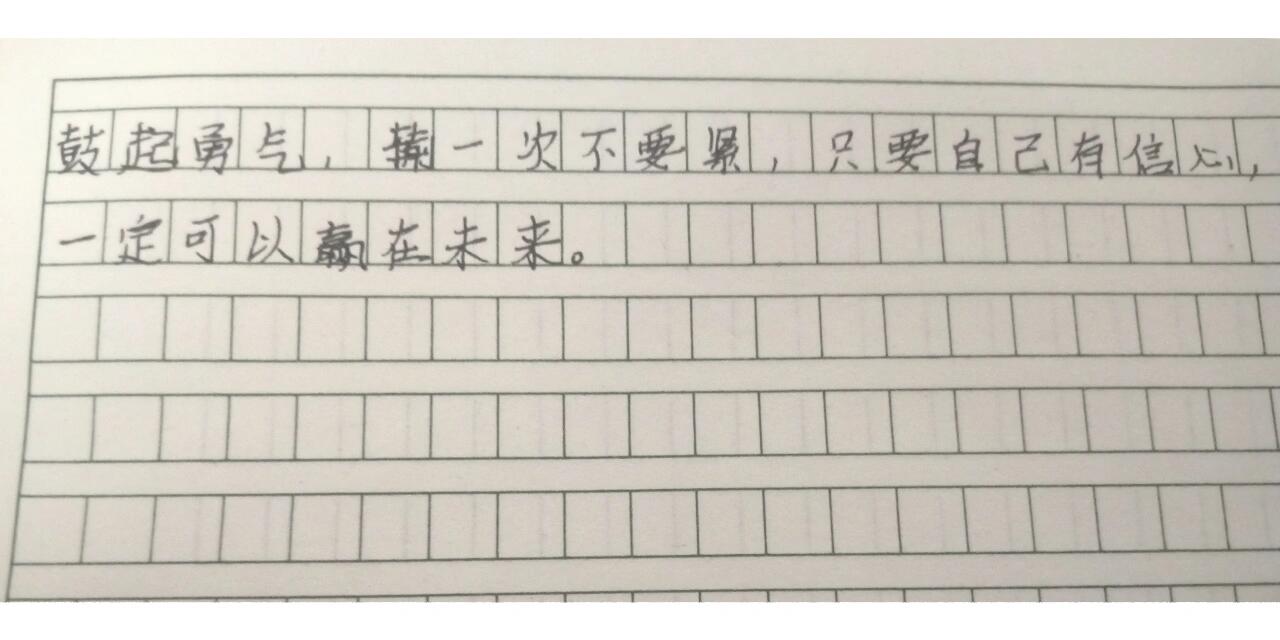 鼓起勇气，一次不要紧，只要自己有信心，
一定可以赢在未来。